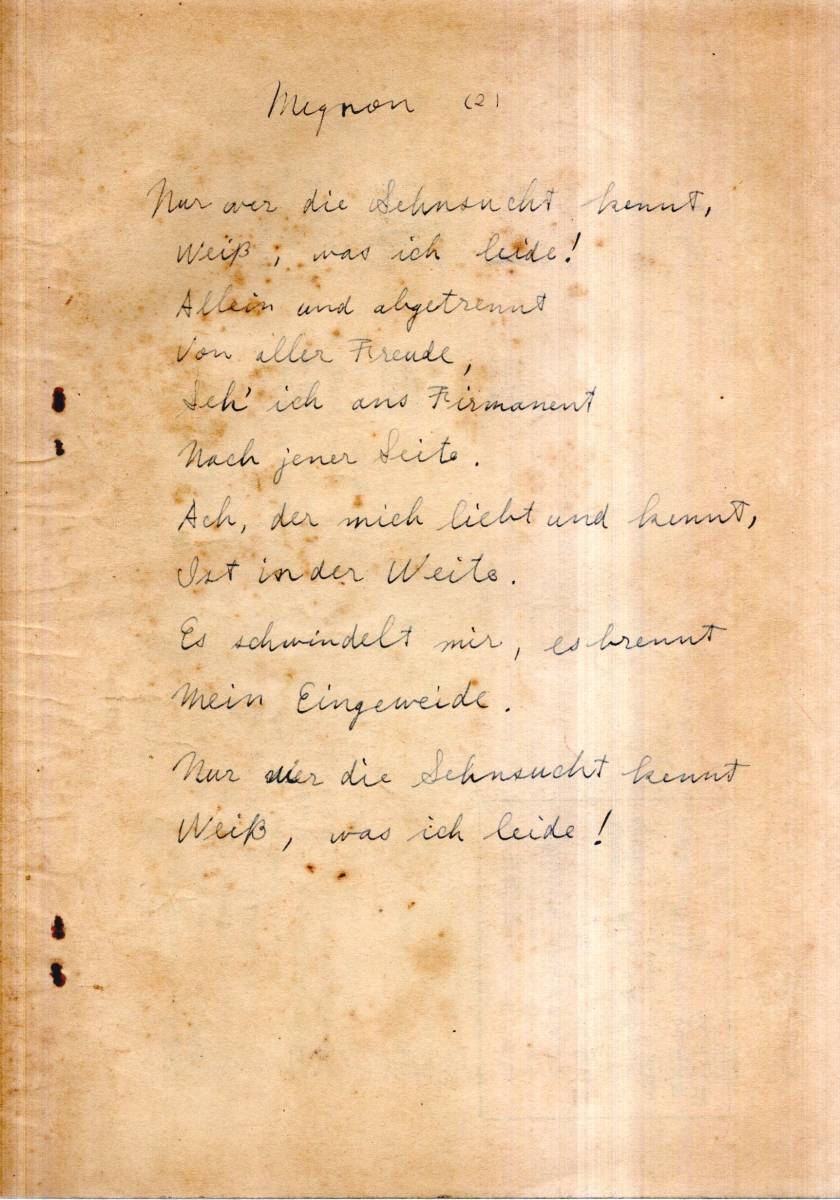 Mignon (2)
Nur wer die Sehnsucht kennt,
Weiß, was ich leide!
Allein und abgetrennt
Von aller Freude,
Seh' ich ans Firmanent
Nach jener Seite.
Ach, der mich liebt und kennt,
Ist in der Weite.
Es schwindelt mir, es brennt
Mein Eingeweide.
Nur wer die Sehnsucht kennt
Weiß, was ich leide!